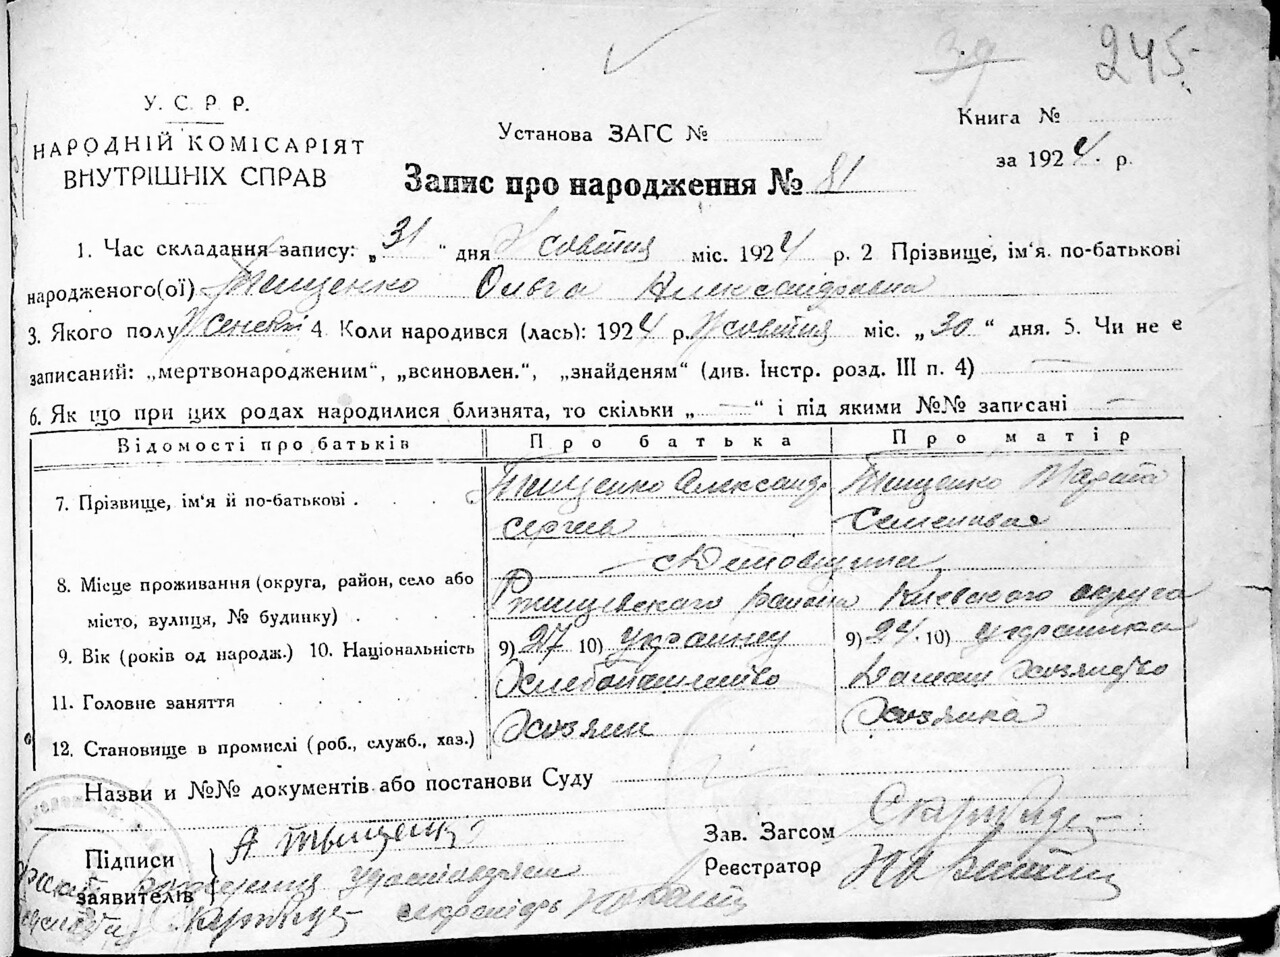 245
У. С. Р. Р.
НАРОДНІЙ КОМІСАРІЯТ
ВНУТРІШНІХ СПРАВ
Установа ЗАГС №
Книга №
за 1924. р.
Запис про народження № 81
1. Час складання запису: „31 “ дня міс. 1924 р. 2 Прізвище, ім'я. по-батькові
народженого(ої) Тищенко Ольга Александровна
3. Якого полу Женский 4. Коли народився (лась): 1924 р. міс. „30“ дня. 5. Чи не є
записаний: „мертвонародженим“, „всиновлен.“, „знайденям“ (див. Інстр. розд. III п. 4) —
6. Як що при цих родах народилися близнята, то скільки „ — “ і під якими №№ записані —
Відомості про батьків Про батька Про матір
7. Прізвище, ім'я й по-батькові . Тищенко Александр Тищенко
Сергиев Семеновна
8. Місце проживання (округа, район, село або
місто, вулиця, № будинку) . Ржищевского района Киевского округа
9. Вік (років од народж.) 10. Національність 9) 27 10) украинец 9) 24. 10) Украинка
11. Головне заняття Хлебопашество Домаш хозяйство
12. Становище в промислі (роб., служб., хаз.) Хозяин Хозяйка
Назви и №№ документів або постанови Суду
Підписи
заявителів
А Тыщенк
Зав. Загсом
Реєстратор
удостоверяем
секретарь